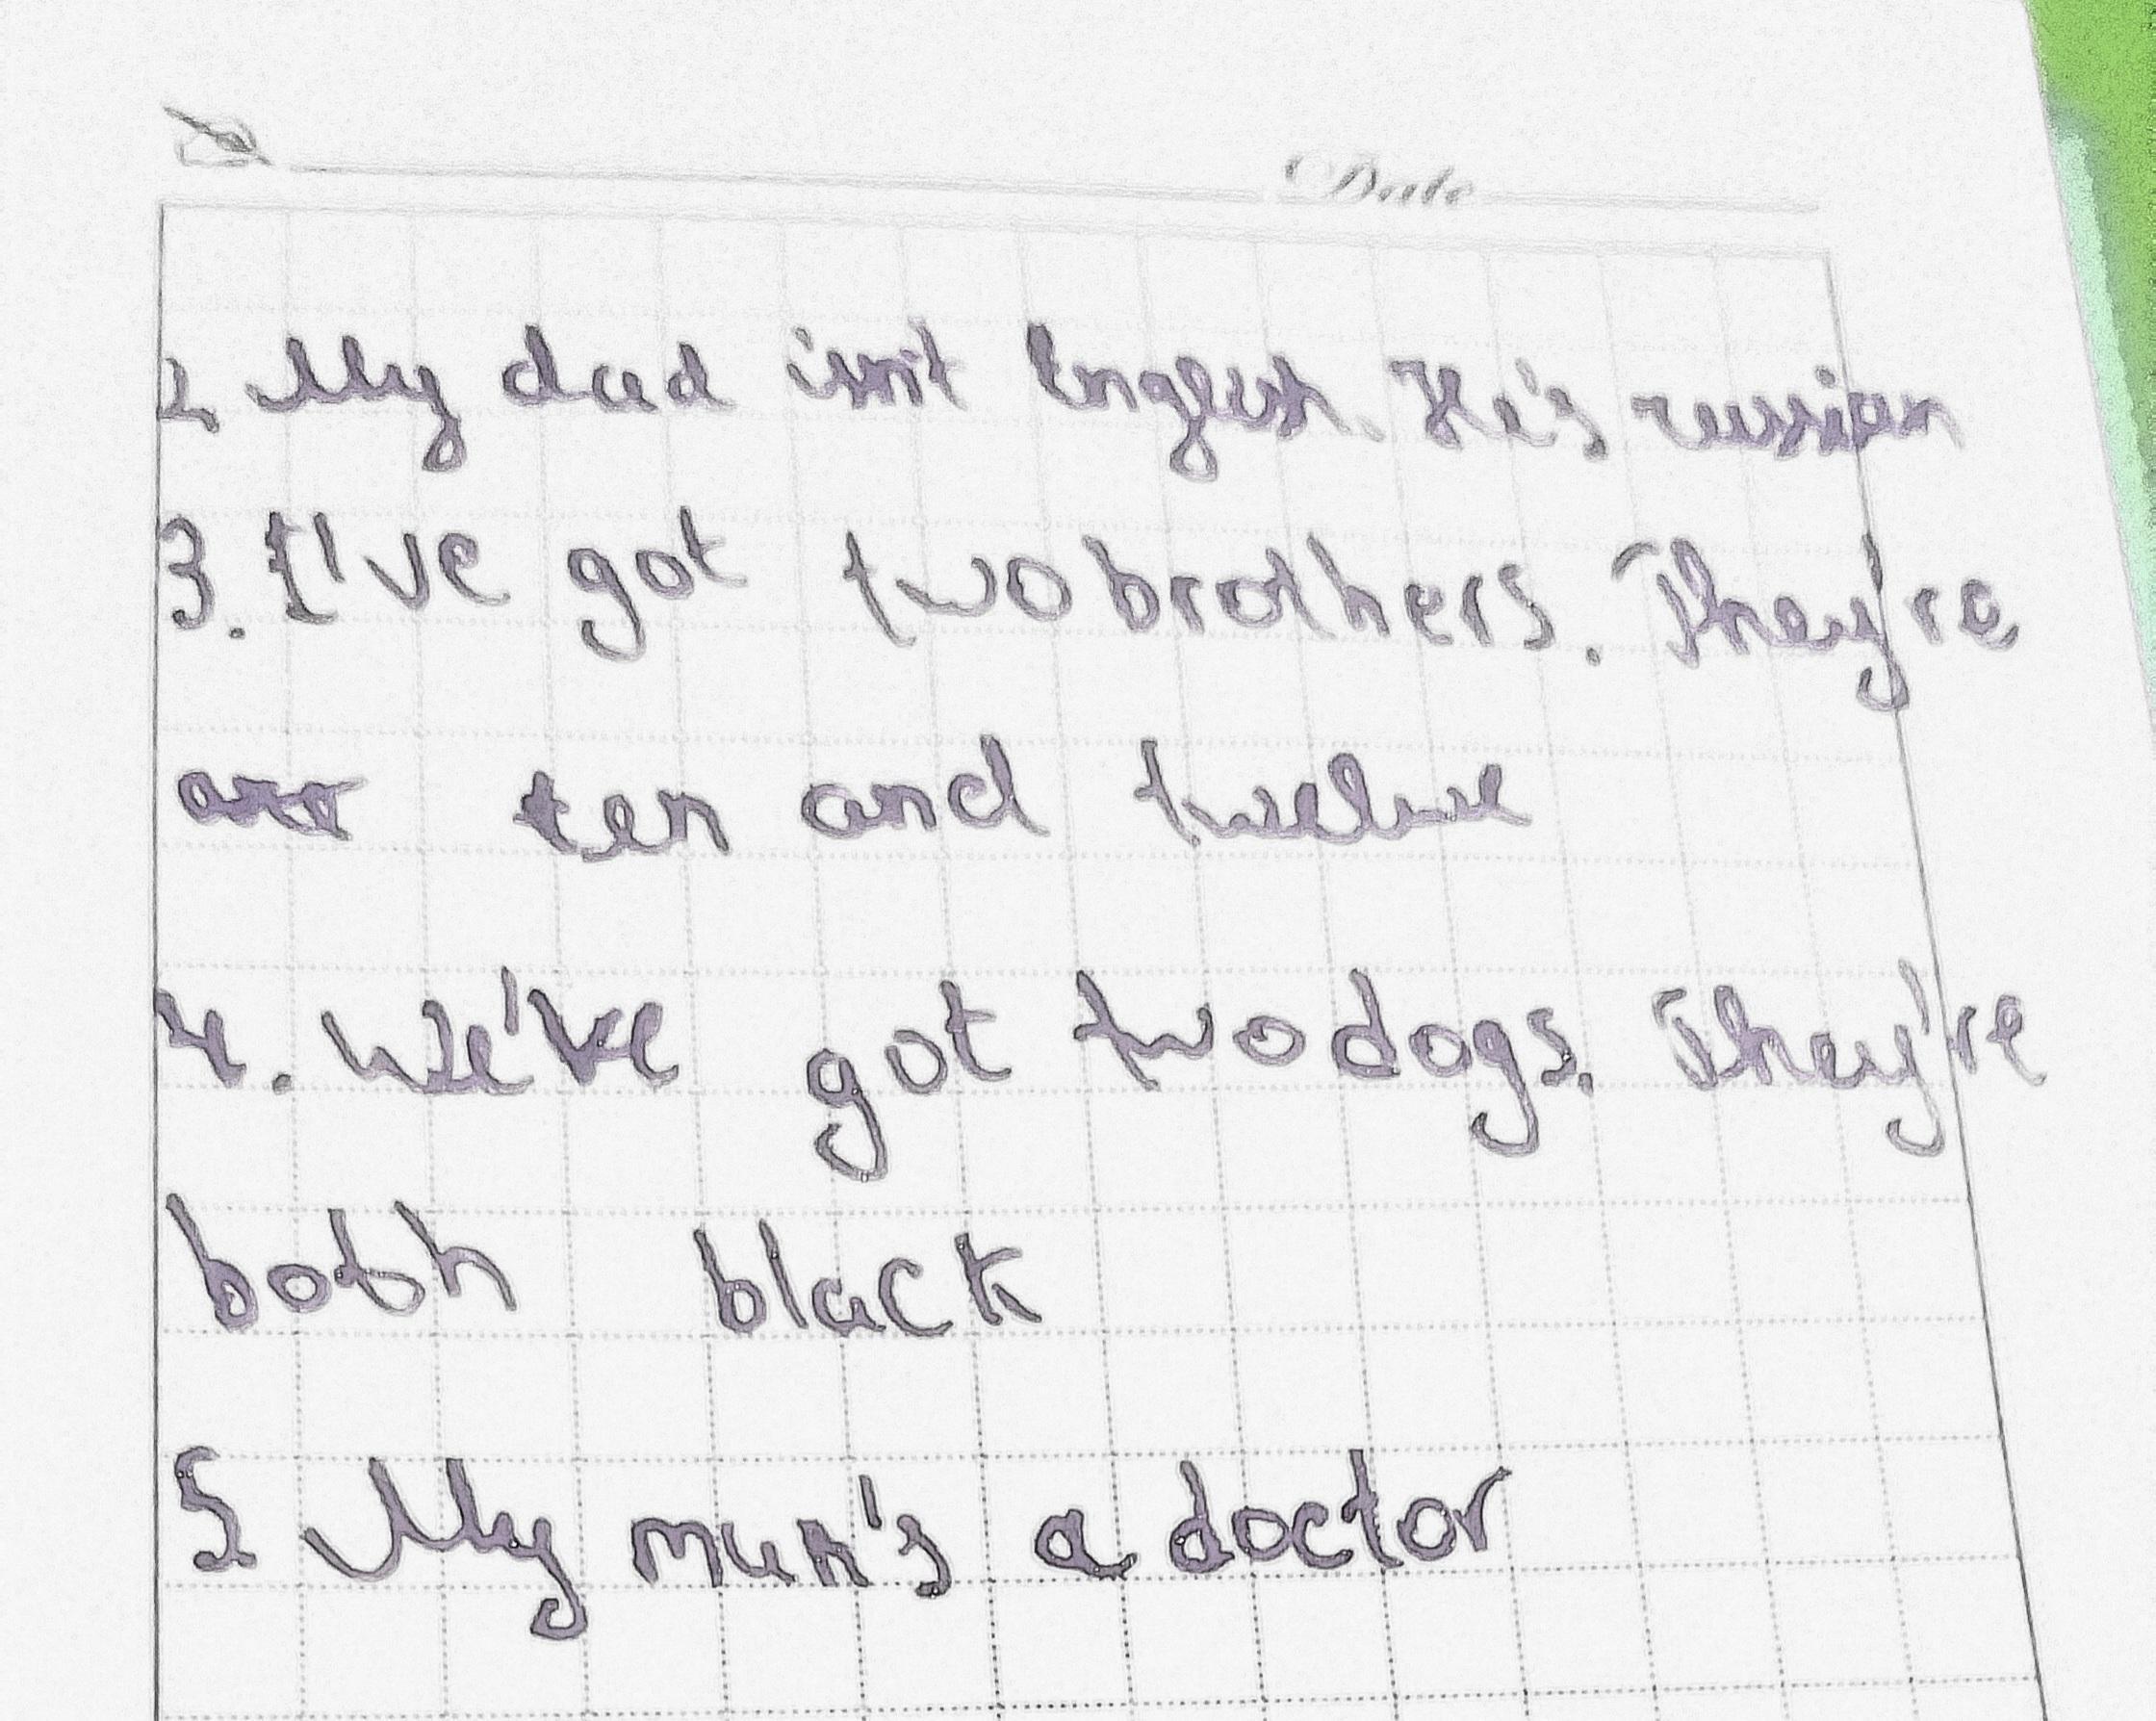 Date
2 My dad isn't English. He's russian
3. I've got two brothers. They're
are ten and twelve
4. We've got two dogs. They're
both black
5 My mum's a doctor